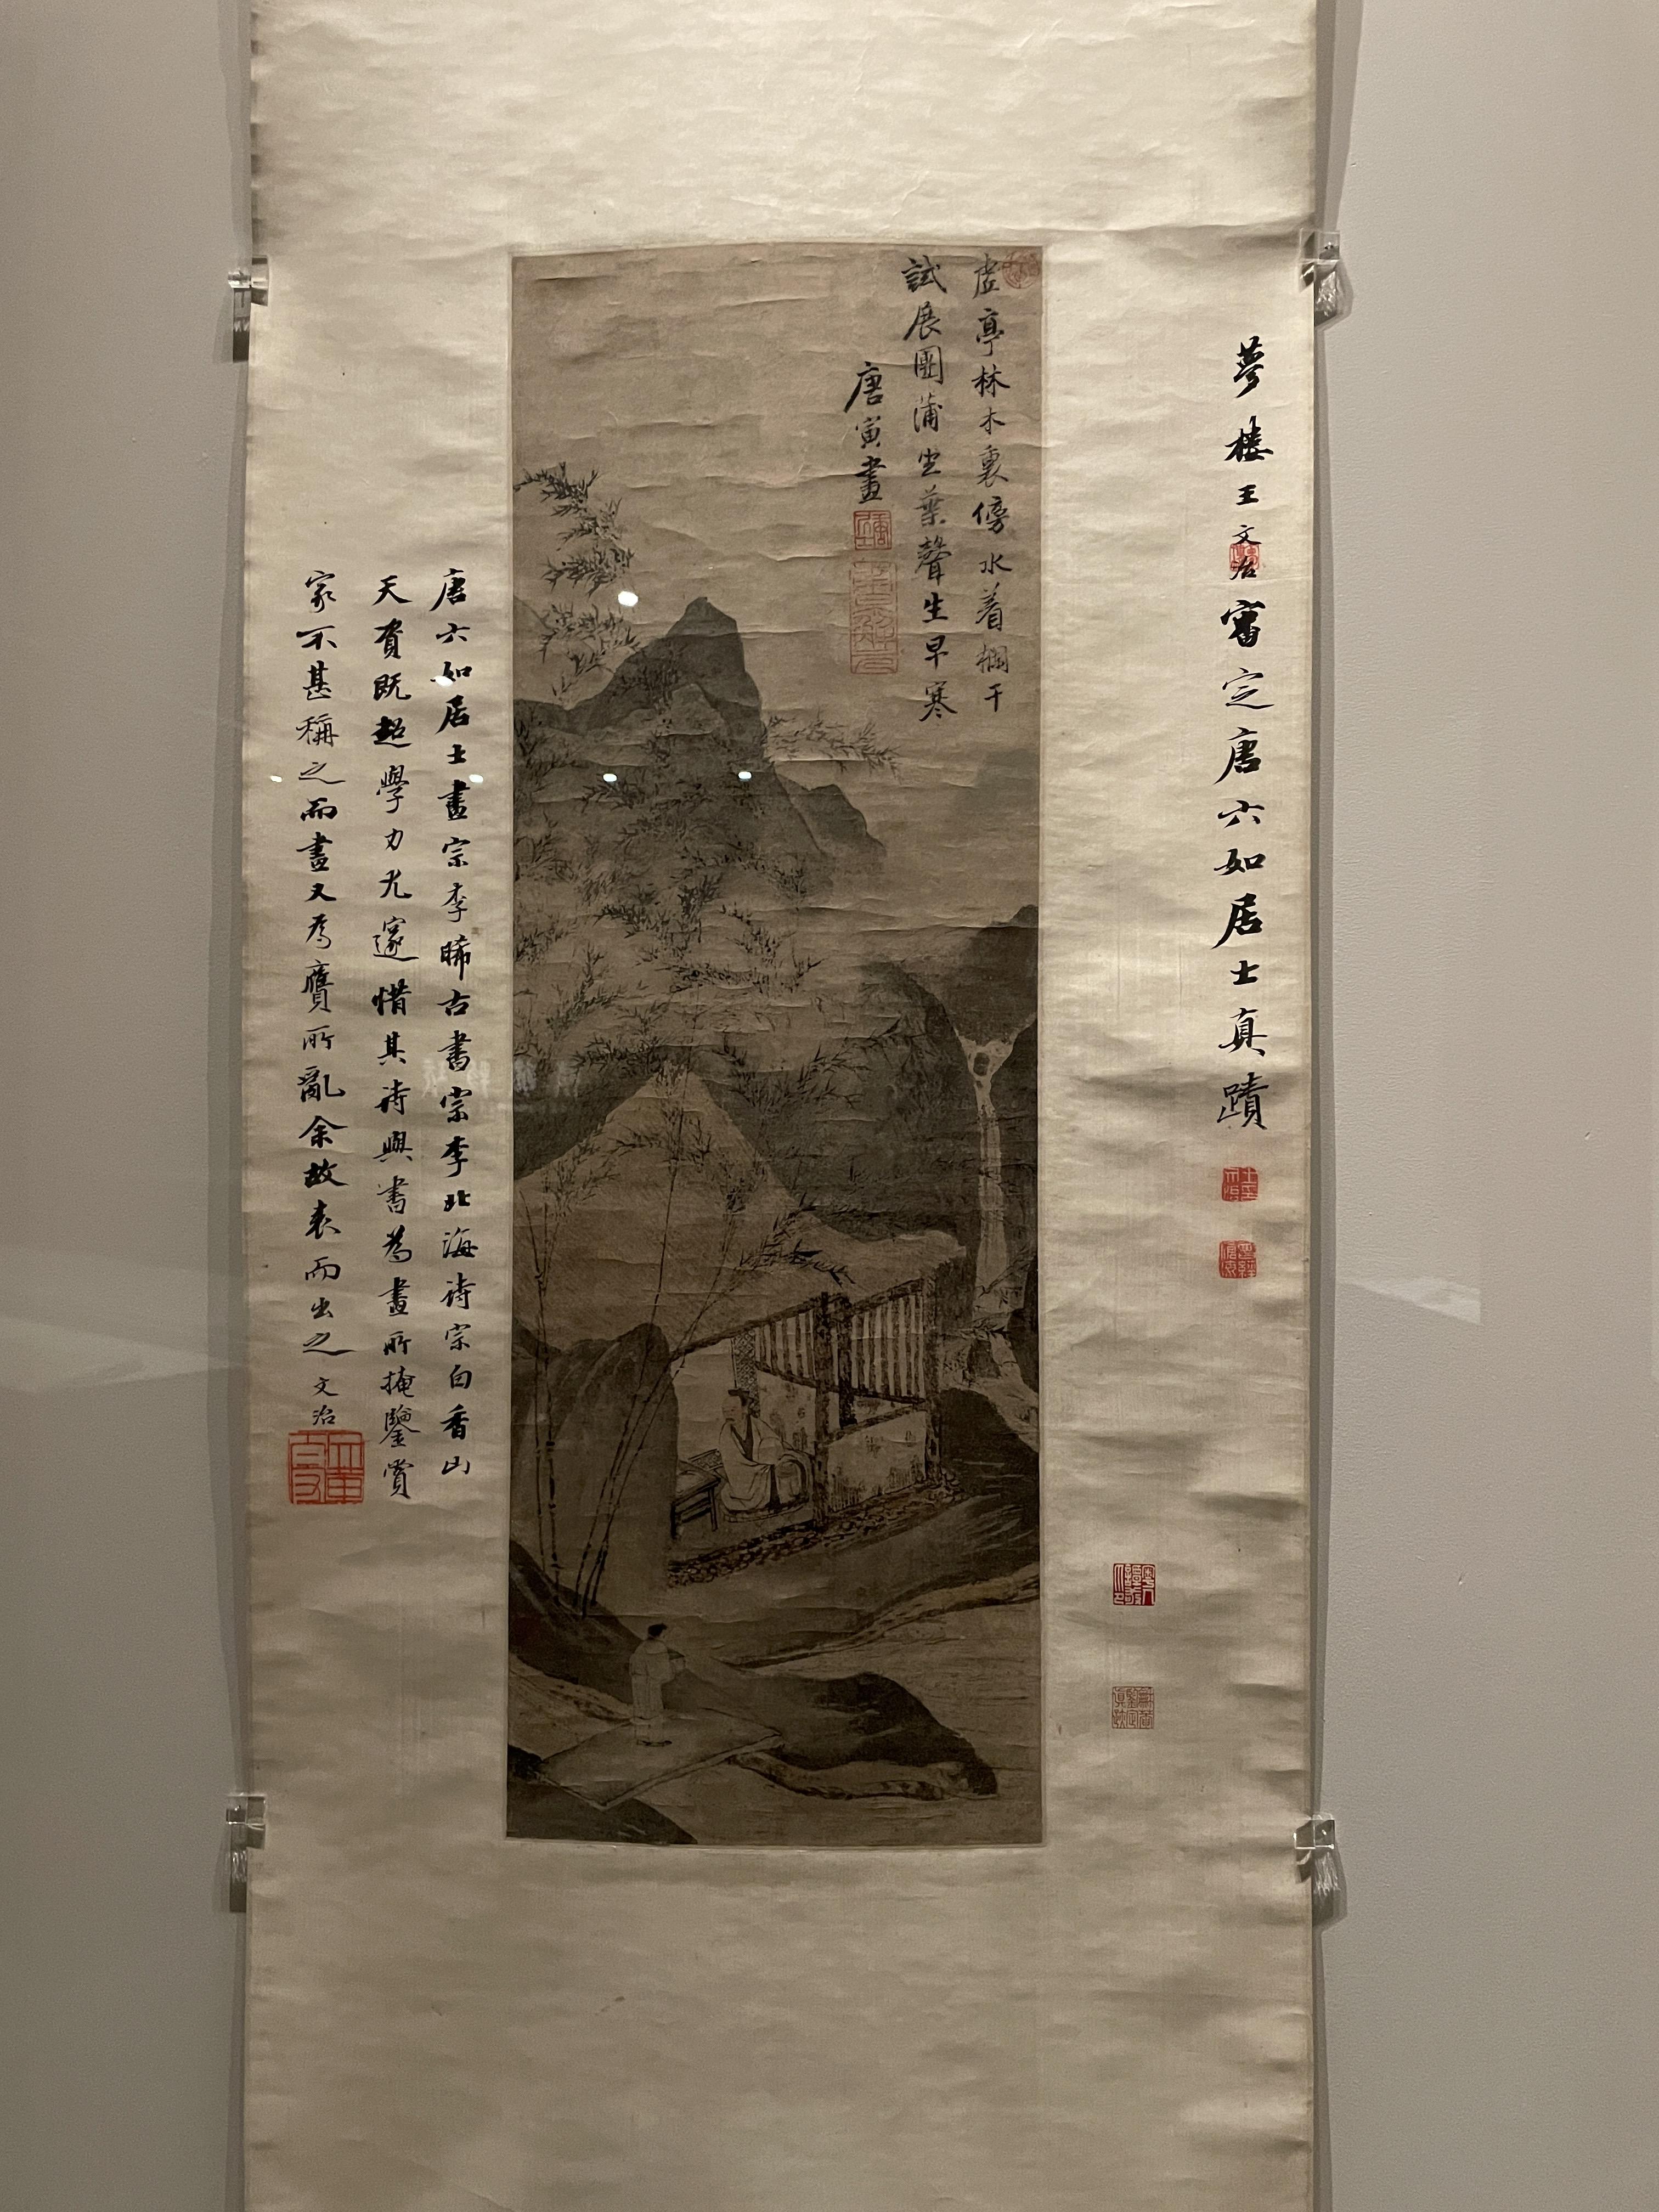 夢樓王文治審定唐六如居士真蹟
虛亭林木裏傍水着欄干
試展團蒲坐葉聲生早寒
唐寅畫
唐六如居士畫宗李晞古書宗李北海詩宗白香山
天資既超學力尤邃惜其詩與書為畫所掩鑒賞
家不甚稱之而畫又為贋所亂余故表而出之文治